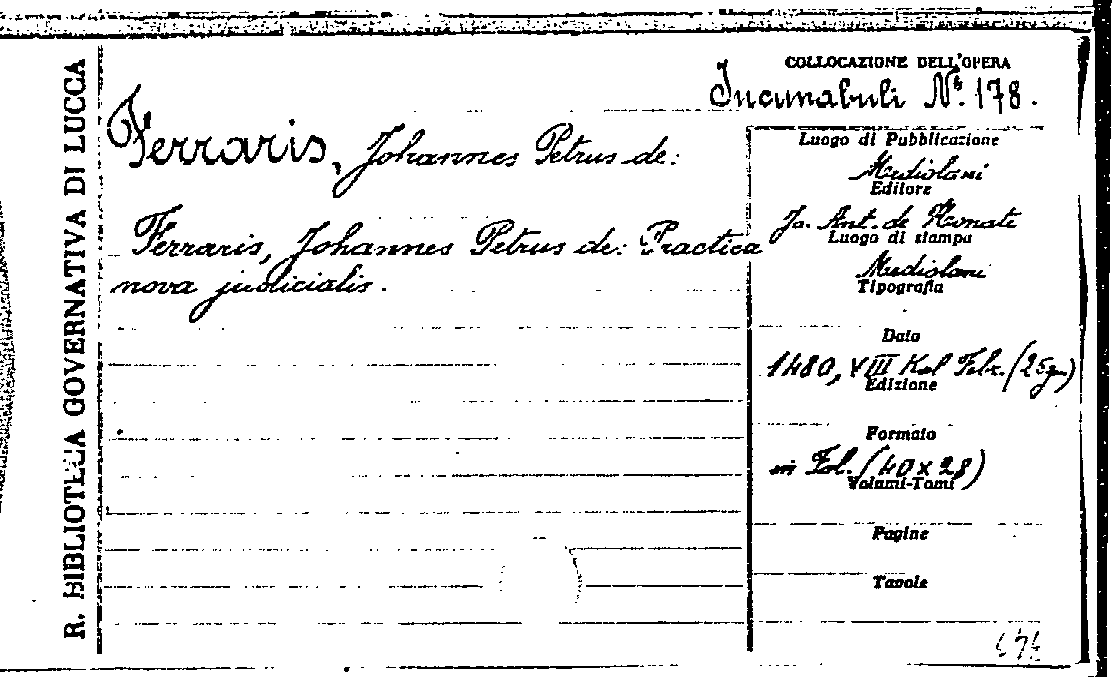 R. BIBLIOTECA GOVERNATIVA DI LUCCA
COLLOCAZIONE DELL'OPERA
Incunabuli N.° 178.
Ferraris, Johannes Petrus de:
Ferraris, Johannes Petrus de: Practica
nova judicialis.
Luogo di Pubblicazione
Mediolani
Editore
Jo. Ant. de Honate
Luogo di stampa
Mediolani
Tipografia
Data
1480, VIII Kal Febr. (25 gen)
Edizione
Formato
in Fol. (40 x 28)
Volumi-Tomi
Pagine
Tavole